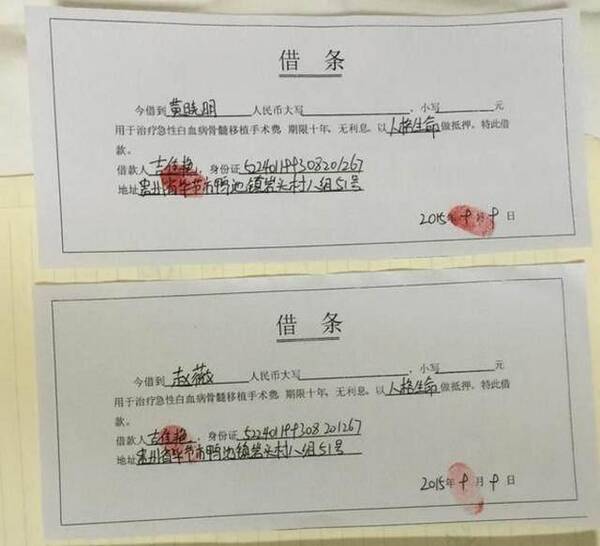 借 条
今借到 黄晓明 人民币大写 小写 元
用于治疗急性白血病骨髓移植手术费,期限十年,无利息,以人格生命做抵押,特此借
款。
借款人 吉佳艳,身份证522401199308201267
地址贵州省毕节市鸭池镇岩头村八组51号
2015年9月9日
借 条
今借到 赵薇 人民币大写 小写 元
用于治疗急性白血病骨髓移植手术费,期限十年,无利息,以人格生命做抵押,特此借
款。
借款人吉佳艳,身份证522401199308201267
地址贵州省毕节市鸭池镇岩头村八组51号
2015年9月9日